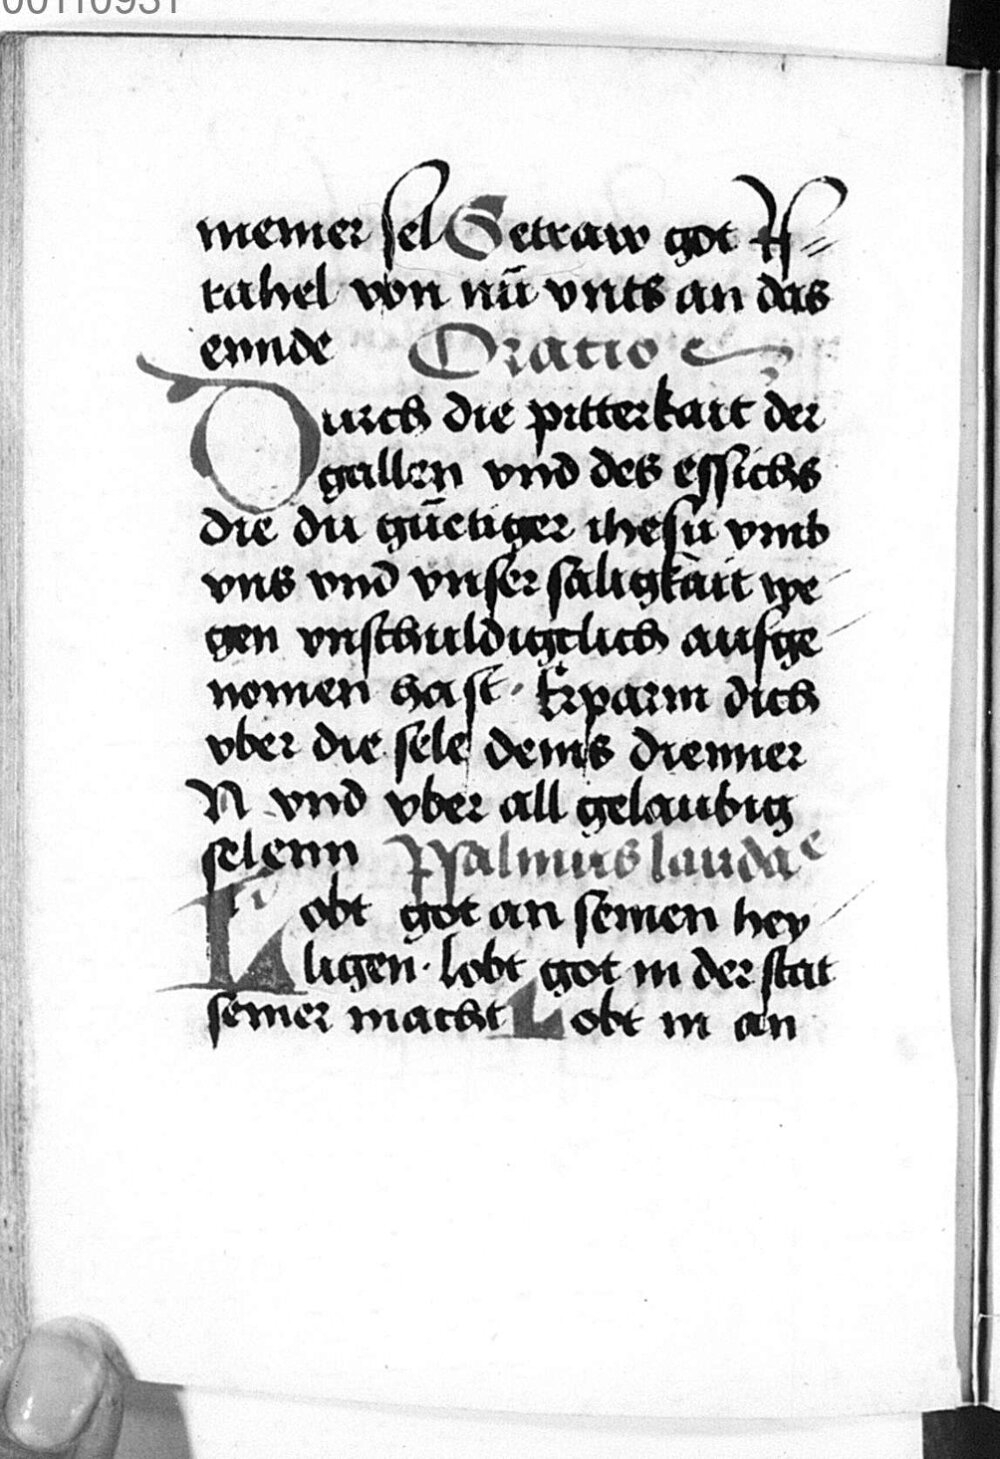 00110931
meiner sel Getraw got Js=
rahel von nū vnts an das
ennde Oratio
Durch die pitterkait der
gallen vnd des essichs
die du gūetiger ihesu vmb
vns vnd vnser såligkait we-
gen vnschuldigclich aufge-
nomen hast · Erparm dich
vber die sele deins dienner
N vnd vber all gelaubig
selenn Psalmus laudate
Lobt got an seinen hey-
ligen · lobt got in der stat
seiner macht Lobt in an